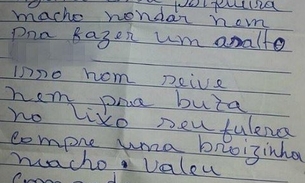 macho rondar nem
pra fazer um asalto
isso nom seive
nem pra buta
no lixo seu fulera
compre uma broizinha
macho. valeu